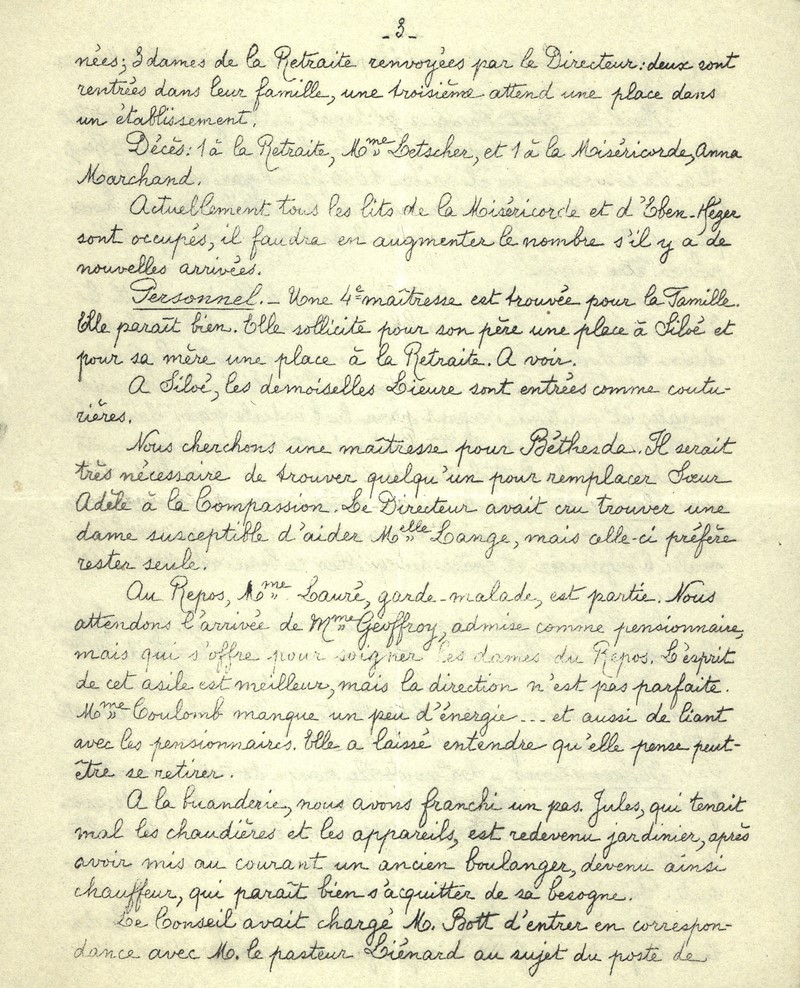 - 3 -
nées; 3 dames de la Retraite renvoyées par le Directeur: deux sont
rentrées dans leur famille, une troisième attend une place dans
un établissement.
Décès: 1 à la Retraite, Mme Letscher, et 1 à la Miséricorde, Anna
Marchand.
Actuellement tous les lits de la Miséricorde et d'Eben-Hézer
sont occupés, il faudra en augmenter le nombre s'il y a de
nouvelles arrivées.
Personnel. - Une 4e maîtresse est trouvée pour la Famille.
Elle paraît bien. Elle sollicite pour son père une place à Siloé et
pour sa mère une place à la Retraite. A voir.
A Siloé, les demoiselles Lieure sont entrées comme coutu-
rières.
Nous cherchons une maîtresse pour Béthesda. Il serait
très nécessaire de trouver quelqu'un pour remplacer Sœur
Adèle à la Compassion. Le Directeur avait cru trouver une
dame susceptible d'aider Melle Lange, mais celle-ci préfère
rester seule.
Au Repos, Mme Lauré, garde-malade, est partie. Nous
attendons l'arrivée de Mme Geoffroy, admise comme pensionnaire,
mais qui s'offre pour soigner les dames du Repos. L'esprit
de cet asile est meilleur, mais la direction n'est pas parfaite.
Mme Coulomb manque un peu d'énergie... et aussi de liant
avec les pensionnaires. Elle a laissé entendre qu'elle pense peut-
être se retirer.
A la buanderie, nous avons franchi un pas. Jules, qui tenait
mal les chaudières et les appareils, est redevenu jardinier, après
avoir mis au courant un ancien boulanger, devenu ainsi
chauffeur, qui paraît bien s'acquitter de sa besogne.
Le Conseil avait chargé M. Bott d'entrer en correspon-
dance avec M. le pasteur Liénard au sujet du poste de